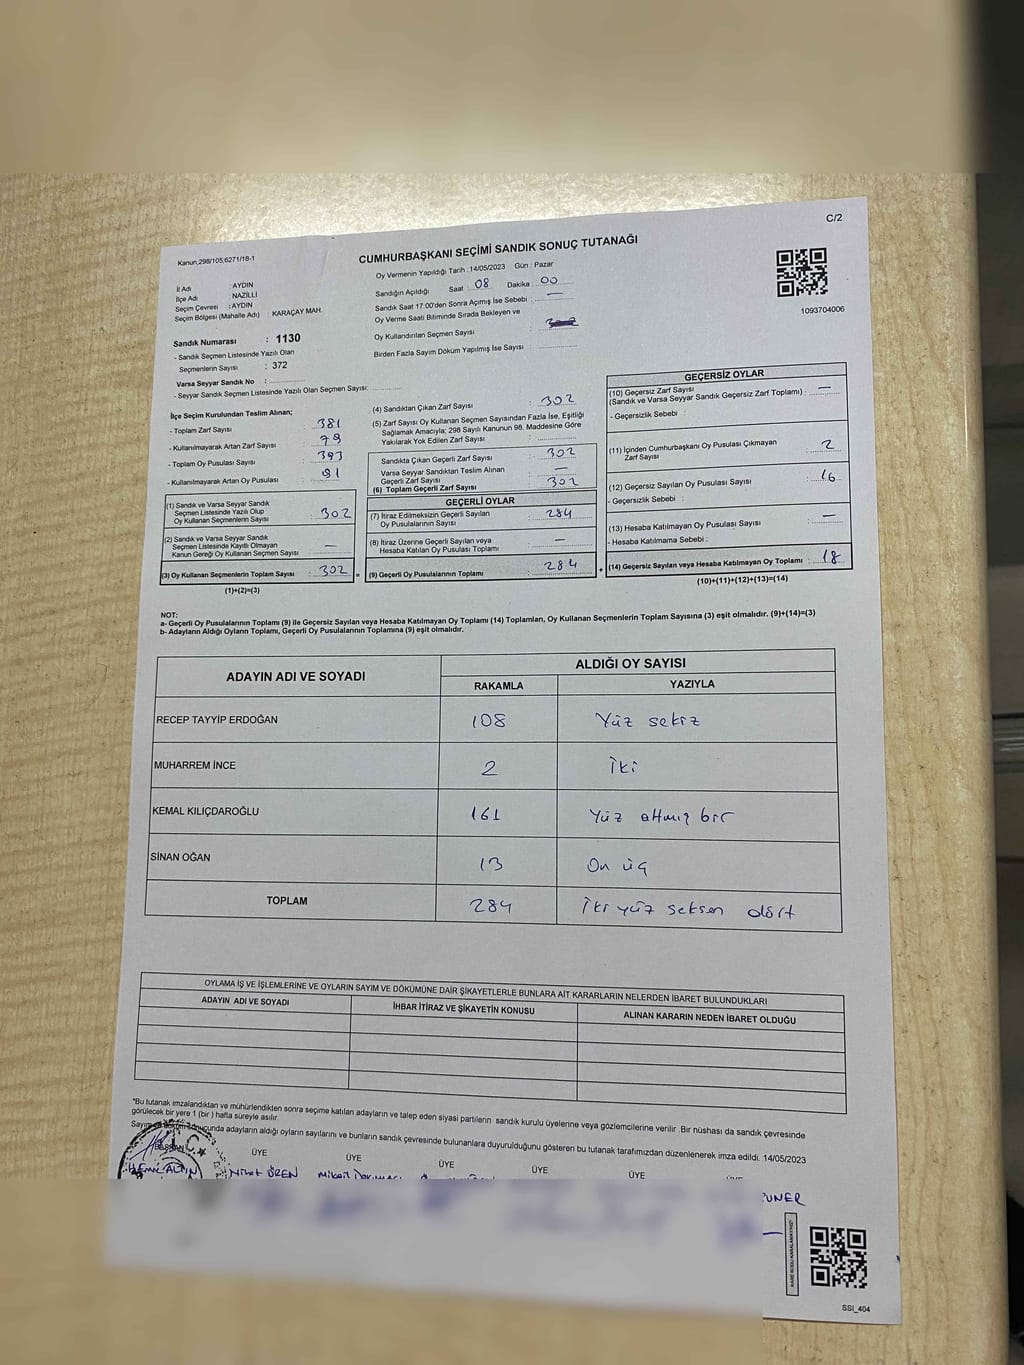 C/2
Kanun;298/105;6271/18-1
CUMHURBAŞKANI SEÇİMİ SANDIK SONUÇ TUTANAĞI
Oy Vermenin Yapıldığı Tarih : 14/05/2023 Gün : Pazar
Sandığın Açıldığı Saat 08 Dakika 00
Sandık Saat 17:00'den Sonra Açımış İse Sebebi : —
Oy Verme Saati Bitiminde Sırada Bekleyen ve
Oy Kullandırılan Seçmen Sayısı :
Birden Fazla Sayım Döküm Yapılmış İse Sayısı :
1093704006
İl Adı : AYDIN
İlçe Adı : NAZİLLİ
Seçim Çevresi : AYDIN
Seçim Bölgesi (Mahalle Adı) : KARAÇAY MAH.
Sandık Numarası : 1130
- Sandık Seçmen Listesinde Yazılı Olan
Seçmenlerin Sayısı : 372
Varsa Seyyar Sandık No :
- Seyyar Sandık Seçmen Listesinde Yazılı Olan Seçmen Sayısı:
İlçe Seçim Kurulundan Teslim Alınan;
- Toplam Zarf Sayısı : 381
- Kullanılmayarak Artan Zarf Sayısı : 79
- Toplam Oy Pusulası Sayısı : 393
- Kullanılmayarak Artan Oy Pusulası : 91
(1) Sandık ve Varsa Seyyar Sandık
Seçmen Listesinde Yazılı Olup
Oy Kullanan Seçmenlerin Sayısı : 302
(2) Sandık ve Varsa Seyyar Sandık
Seçmen Listesinde Kayıtlı Olmayan
Kanun Gereği Oy Kullanan Seçmen Sayısı : —
(3) Oy Kullanan Seçmenlerin Toplam Sayısı : 302 =
(1)+(2)=(3)
(4) Sandıktan Çıkan Zarf Sayısı : 302
(5) Zarf Sayısı Oy Kullanan Seçmen Sayısından Fazla İse, Eşitliği
Sağlamak Amacıyla; 298 Sayılı Kanunun 98. Maddesine Göre
Yakılarak Yok Edilen Zarf Sayısı :
Sandıkta Çıkan Geçerli Zarf Sayısı : 302
Varsa Seyyar Sandıktan Teslim Alınan
Geçerli Zarf Sayısı : —
(6) Toplam Geçerli Zarf Sayısı : 302
GEÇERLİ OYLAR
(7) İtiraz Edilmeksizin Geçerli Sayılan
Oy Pusulalarının Sayısı : 284
(8) İtiraz Üzerine Geçerli Sayılan veya
Hesaba Katılan Oy Pusulası Toplamı : —
(9) Geçerli Oy Pusulalarının Toplamı : 284 +
GEÇERSİZ OYLAR
(10) Geçersiz Zarf Sayısı
(Sandık ve Varsa Seyyar Sandık Geçersiz Zarf Toplamı) : —
- Geçersizlik Sebebi :
(11) İçinden Cumhurbaşkanı Oy Pusulası Çıkmayan
Zarf Sayısı : 2
(12) Geçersiz Sayılan Oy Pusulası Sayısı : 16
- Geçersizlik Sebebi :
(13) Hesaba Katılmayan Oy Pusulası Sayısı : —
- Hesaba Katılmama Sebebi :
(14) Geçersiz Sayılan veya Hesaba Katılmayan Oy Toplamı : 18
(10)+(11)+(12)+(13)=(14)
NOT:
a- Geçerli Oy Pusulalarının Toplamı (9) ile Geçersiz Sayılan veya Hesaba Katılmayan Oy Toplamı (14) Toplamları, Oy Kullanan Seçmenlerin Toplam Sayısına (3) eşit olmalıdır. (9)+(14)=(3)
b- Adayların Aldığı Oyların Toplamı, Geçerli Oy Pusulalarının Toplamına (9) eşit olmalıdır.
ADAYIN ADI VE SOYADI ALDIĞI OY SAYISI
RAKAMLA YAZIYLA
RECEP TAYYİP ERDOĞAN 108 Yüz sekiz
MUHARREM İNCE 2 İki
KEMAL KILIÇDAROĞLU 161 Yüz altmış bir
SİNAN OĞAN 13 On üç
TOPLAM 284 İki yüz seksen dört
OYLAMA İŞ VE İŞLEMLERİNE VE OYLARIN SAYIM VE DÖKÜMÜNE DAİR ŞİKAYETLERLE BUNLARA AİT KARARLARIN NELERDEN İBARET BULUNDUKLARI
ADAYIN ADI VE SOYADI İHBAR İTİRAZ VE ŞİKAYETİN KONUSU ALINAN KARARIN NEDEN İBARET OLDUĞU
*Bu tutanak imzalandıktan ve mühürlendikten sonra seçime katılan adayların ve talep eden siyasi partilerin sandık kurulu üyelerine veya gözlemcilerine verilir. Bir nüshası da sandık çevresinde
görülecek bir yere 1 (bir) hafta süreyle asılır.
Sayım ve döküm sonucunda adayların aldığı oyların sayılarını ve bunların sandık çevresinde bulunanlara duyurulduğunu gösteren bu tutanak tarafımızdan düzenlenerek imza edildi. 14/05/2023
BAŞKAN ÜYE ÜYE ÜYE ÜYE ÜYE
T.C.
ÖREN Mikail
SSI_404